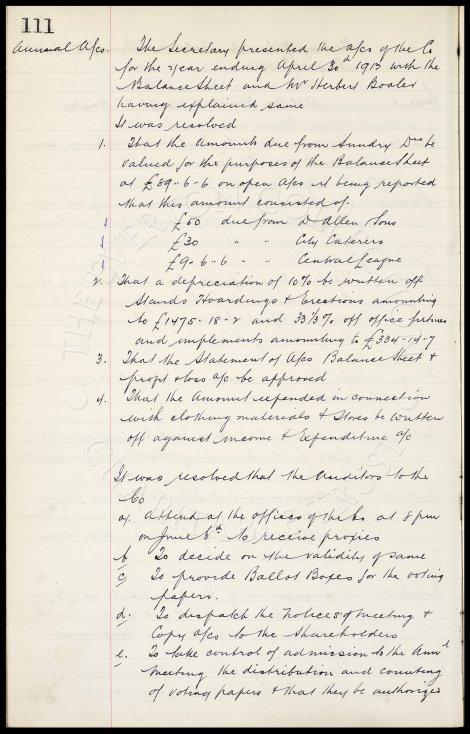 111
Annual A/cs. The Secretary presented the a/cs of the Co
for the year ending April 30th 1913 with the
Balance Sheet and Mr Herbert Booler
having explained same
It was resolved
1. That the amounts due from Sundry Drs be
valued for the purposes of the Balance Sheet
at £89-6-6 on open a/cs it being reported
that this amount consisted of.
£50 due from D. Allen & Sons
£30 " " City Caterers
£9-6-6 " " Central League
2. That a depreciation of 10% be written off
Stands Hoardings & Erections amounting
to £1475-18-2 and 33 1/3% off office fixtures
and implements amounting to £334-14-7
3. That the Statement of A/cs Balance Sheet &
profit & loss a/c be approved
4. That the Amount expended in connection
with clothing materials & Stores be written
off against Income & Expenditure a/c
It was resolved that the Auditors to the
Co
a). Attend at the offices of the Co at 8 pm
on June 6th to receive proxies
b To decide on the validity of same
c) To provide Ballot Boxes for the voting
papers.
d. To dispatch the Notices of Meeting &
Copy a/cs to the Shareholders
e. To take control of admission to the Annl
Meeting the distribution and counting
of voting papers & that they be authorized